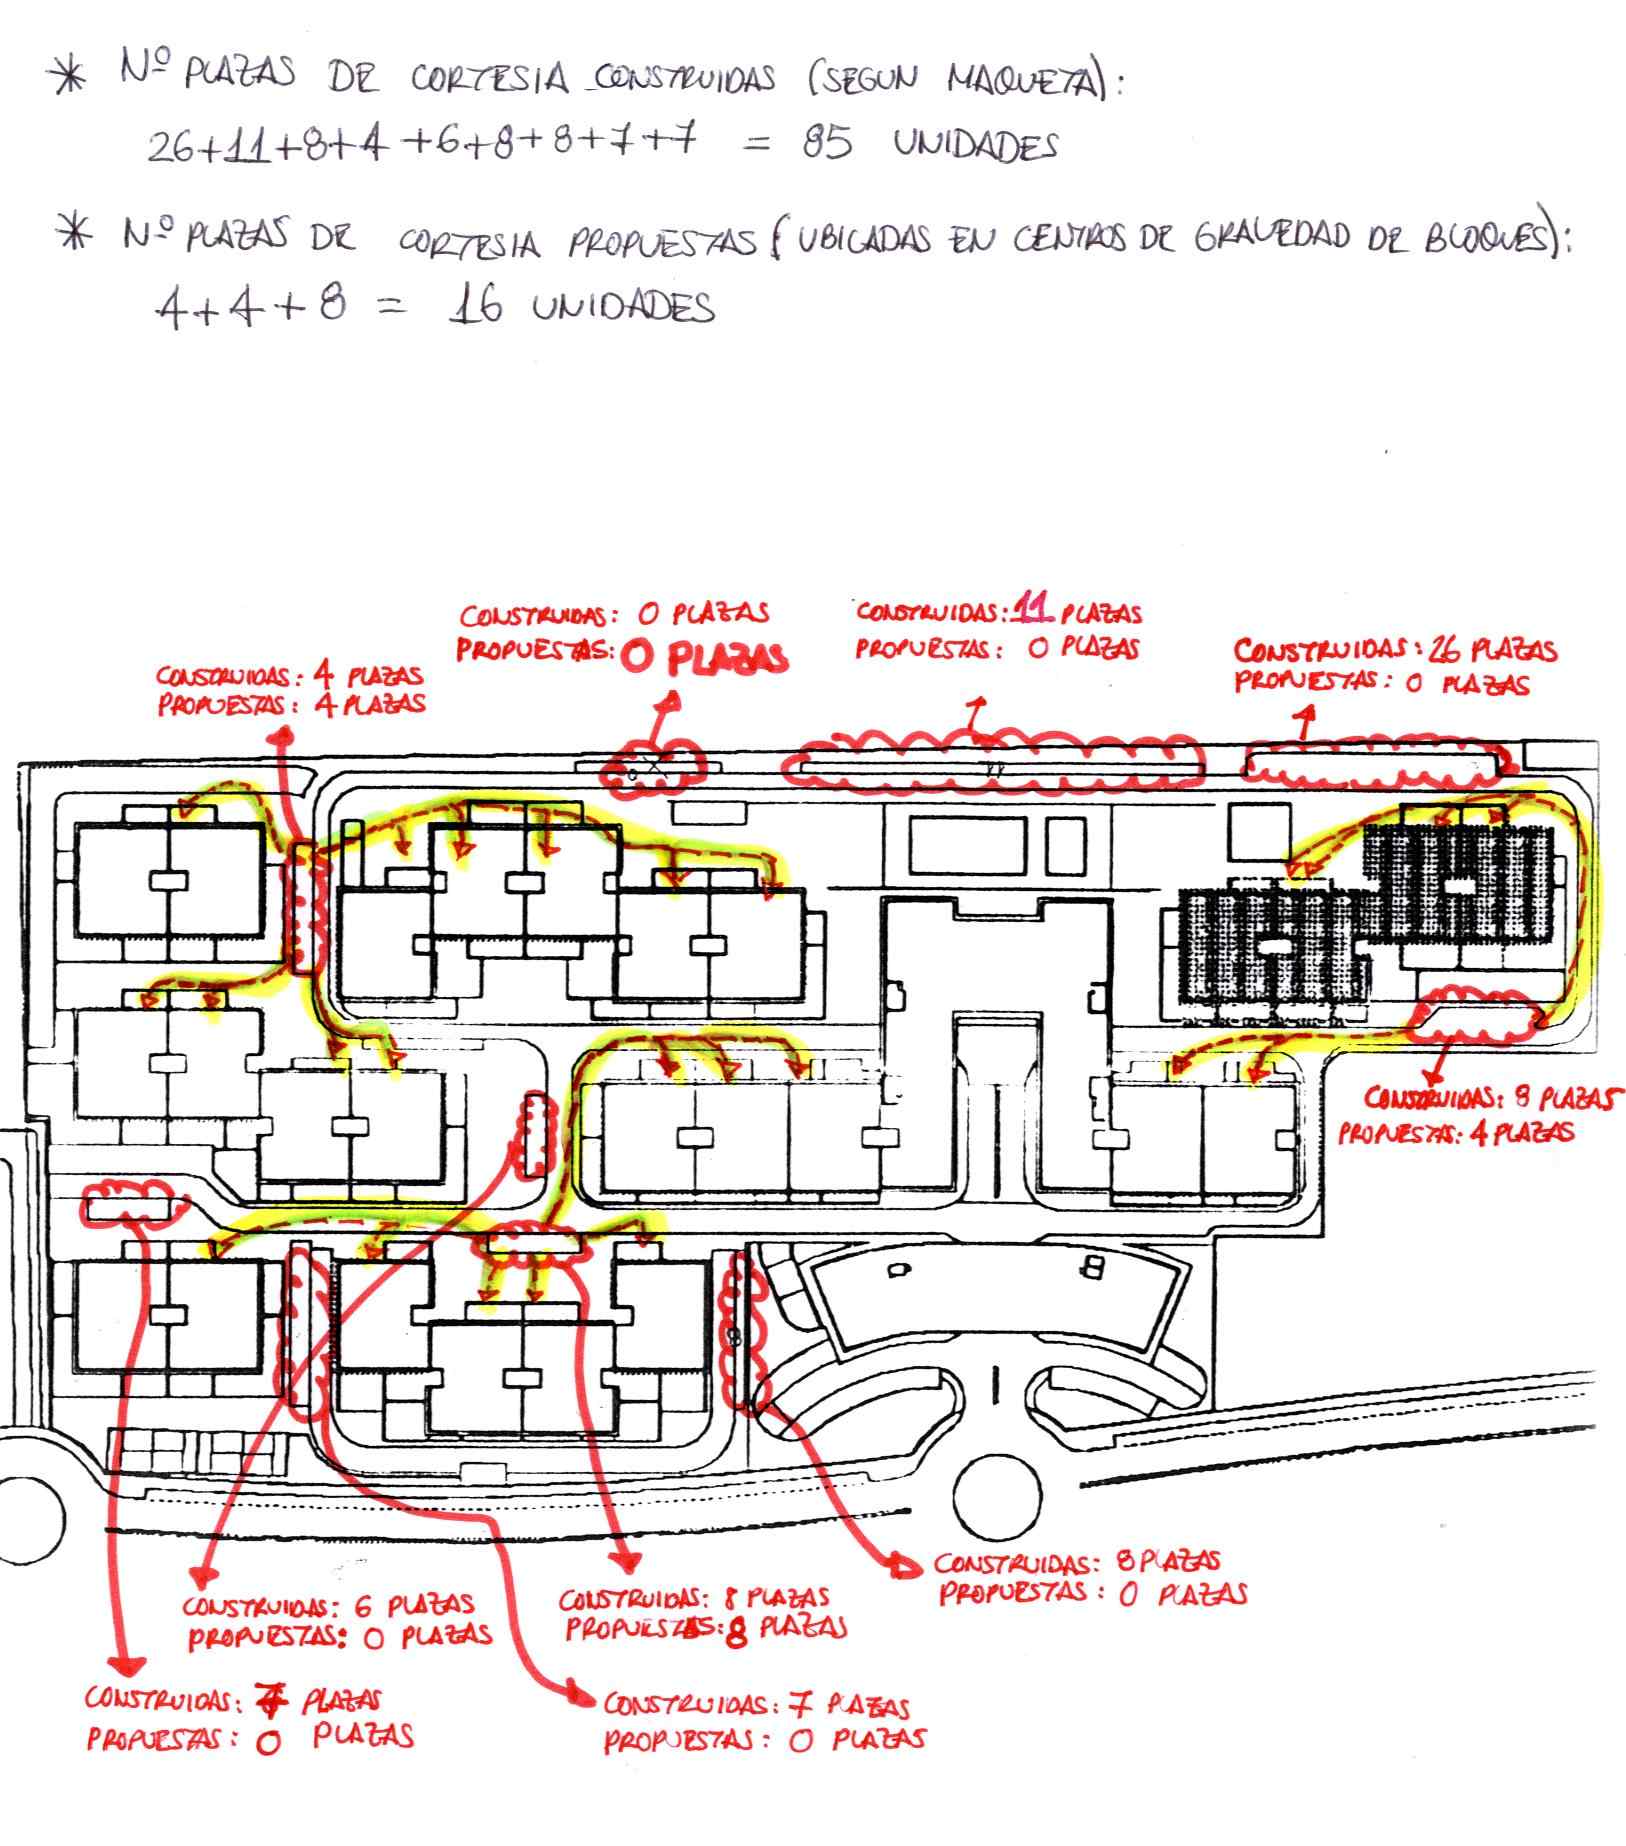 * Nº PLAZAS DE CORTESIA CONSTRUIDAS (SEGUN MAQUETA):
26+11+8+4+6+8+8+7+7 = 85 UNIDADES
* Nº PLAZAS DE CORTESIA PROPUESTAS (UBICADAS EN CENTROS DE GRAVEDAD DE BLOQUES):
4+4+8 = 16 UNIDADES
CONSTRUIDAS: 0 PLAZAS
PROPUESTAS: 0 PLAZAS
CONSTRUIDAS: 11 PLAZAS
PROPUESTAS: 0 PLAZAS
CONSTRUIDAS: 26 PLAZAS
PROPUESTAS: 0 PLAZAS
CONSTRUIDAS: 4 PLAZAS
PROPUESTAS: 4 PLAZAS
CONSTRUIDAS: 8 PLAZAS
PROPUESTAS: 4 PLAZAS
CONSTRUIDAS: 8 PLAZAS
PROPUESTAS: 0 PLAZAS
CONSTRUIDAS: 6 PLAZAS
PROPUESTAS: 0 PLAZAS
CONSTRUIDAS: 8 PLAZAS
PROPUESTAS: 8 PLAZAS
CONSTRUIDAS: 7 PLAZAS
PROPUESTAS: 0 PLAZAS
CONSTRUIDAS: 7 PLAZAS
PROPUESTAS: 0 PLAZAS